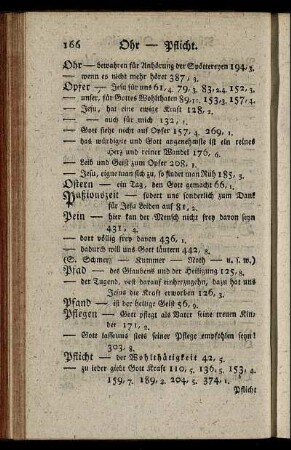 166 Ohr — Pflicht.
Ohr — bewahren für Anhörung der Spöttereyen 194, 3.
— wenn es nicht mehr höret 387, 3.
Opfer — Jesu für uns 61, 4. 79, 3. 83, 2.4. 152, 3.
— unser, für Gottes Wohlthaten 89, 11. 153, 3. 157, 4.
— Jesu, hat eine ewige Kraft 128, 2.
— — auch für mich 132, 1.
— Gott sieht nicht auf Opfer 157, 4. 269, 1.
— das würdigste und Gott angenehmste ist ein reines
Herz und reiner Wandel 176, 6.
— Leib und Geist zum Opfer 208, 1.
— Jesu, eigne man sich zu, so findet man Ruh 185, 5.
Ostern — ein Tag, den Gott gemacht 66, 1.
Paßionszeit — fodert uns sonderlich zum Dank
für Jesu Leiden auf 81, 2.
Pein — hier kan der Mensch nicht frey davon seyn
431, 4.
— dort völlig frey davon 436, 1.
— dadurch will uns Gott läutern 442, 8.
(S. Schmerz — Kummer — Noth — u. s. w.)
Pfad — des Glaubens und der Heiligung 125, 8.
— der Tugend, vest darauf einherzugehn, dazu hat uns
Jesus die Kraft erworben 126, 3.
Pfand — ist der heilige Geist 56, 9.
Pflegen — Gott pflegt als Vater seine treuen Kin-
der 171, 9.
— Gott lassung stets seiner Pflege empfohlen seyn!
303, 8.
Pflicht — der Wohlthätigkeit 42, 5.
— zu jeder giebt Gott Kraft 110, 5. 136, 5. 153, 4.
159, 7. 189, 2. 204, 5. 374, 1.
Pflicht